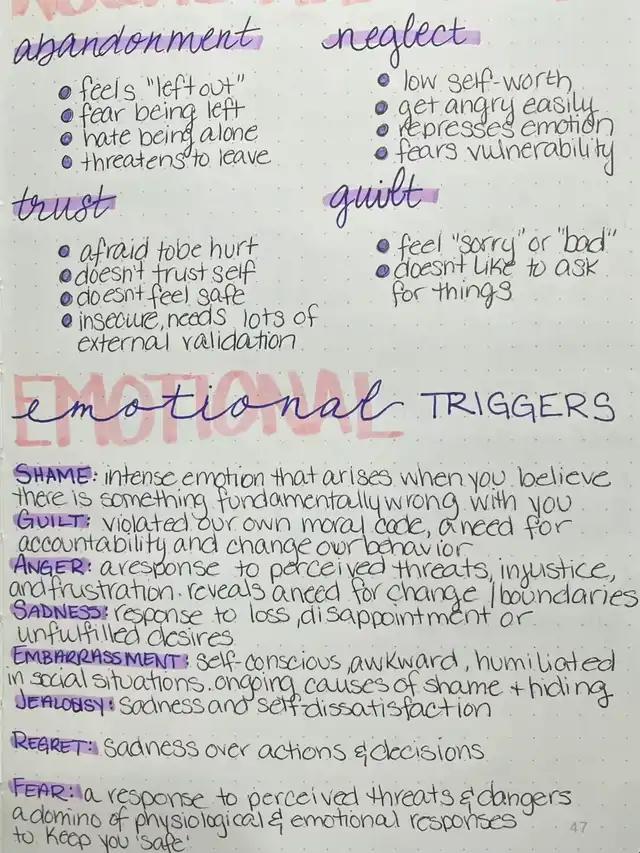 abandonment
• feels "left out"
• fear being left
• hate being alone
• threatens to leave
neglect
• low self-worth
• get angry easily
• represses emotion
• fears vulnerability
trust
• afraid to be hurt
• doesn't trust self
• doesn't feel safe
• insecure, needs lots of
external validation
guilt
• feel "sorry" or "bad"
• doesn't like to ask
for things
EMOTIONAL
emotional TRIGGERS
SHAME: intense emotion that arises when you believe
there is something fundamentally wrong with you
GUILT: violated our own moral code, a need for
accountability and change our behavior
ANGER: a response to perceived threats, injustice,
and frustration. reveals a need for change / boundaries
SADNESS: response to loss, disappointment or
unfulfilled desires
EMBARRASSMENT: self-conscious, awkward, humiliated
in social situations. ongoing causes of shame + hiding
JEALOUSY: sadness and self-dissatisfaction
REGRET: sadness over actions & decisions
FEAR: a response to perceived threats & dangers
a domino of physiological & emotional responses
to keep you 'safe'
47